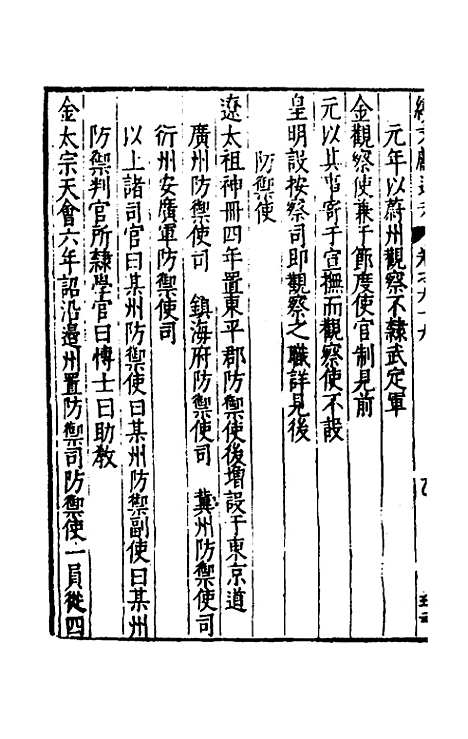 元年以蔚州觀察不隸武定軍
金觀察使兼于節度使官制見前
元以其事寄于宣撫而觀察使不設
皇明設按察司即觀察之職詳見後
防禦使
遼太祖神冊四年置東平郡防禦使後增設于東京道
廣州防禦使司　鎮海府防禦使司　冀州防禦使司
衍州安廣軍防禦使司
以上諸司官曰某州防禦使曰某州防禦副使曰某州
防禦判官所隸學官曰博士曰助教
金太宗天會六年詔沿邊州置防禦司防禦使一員從四